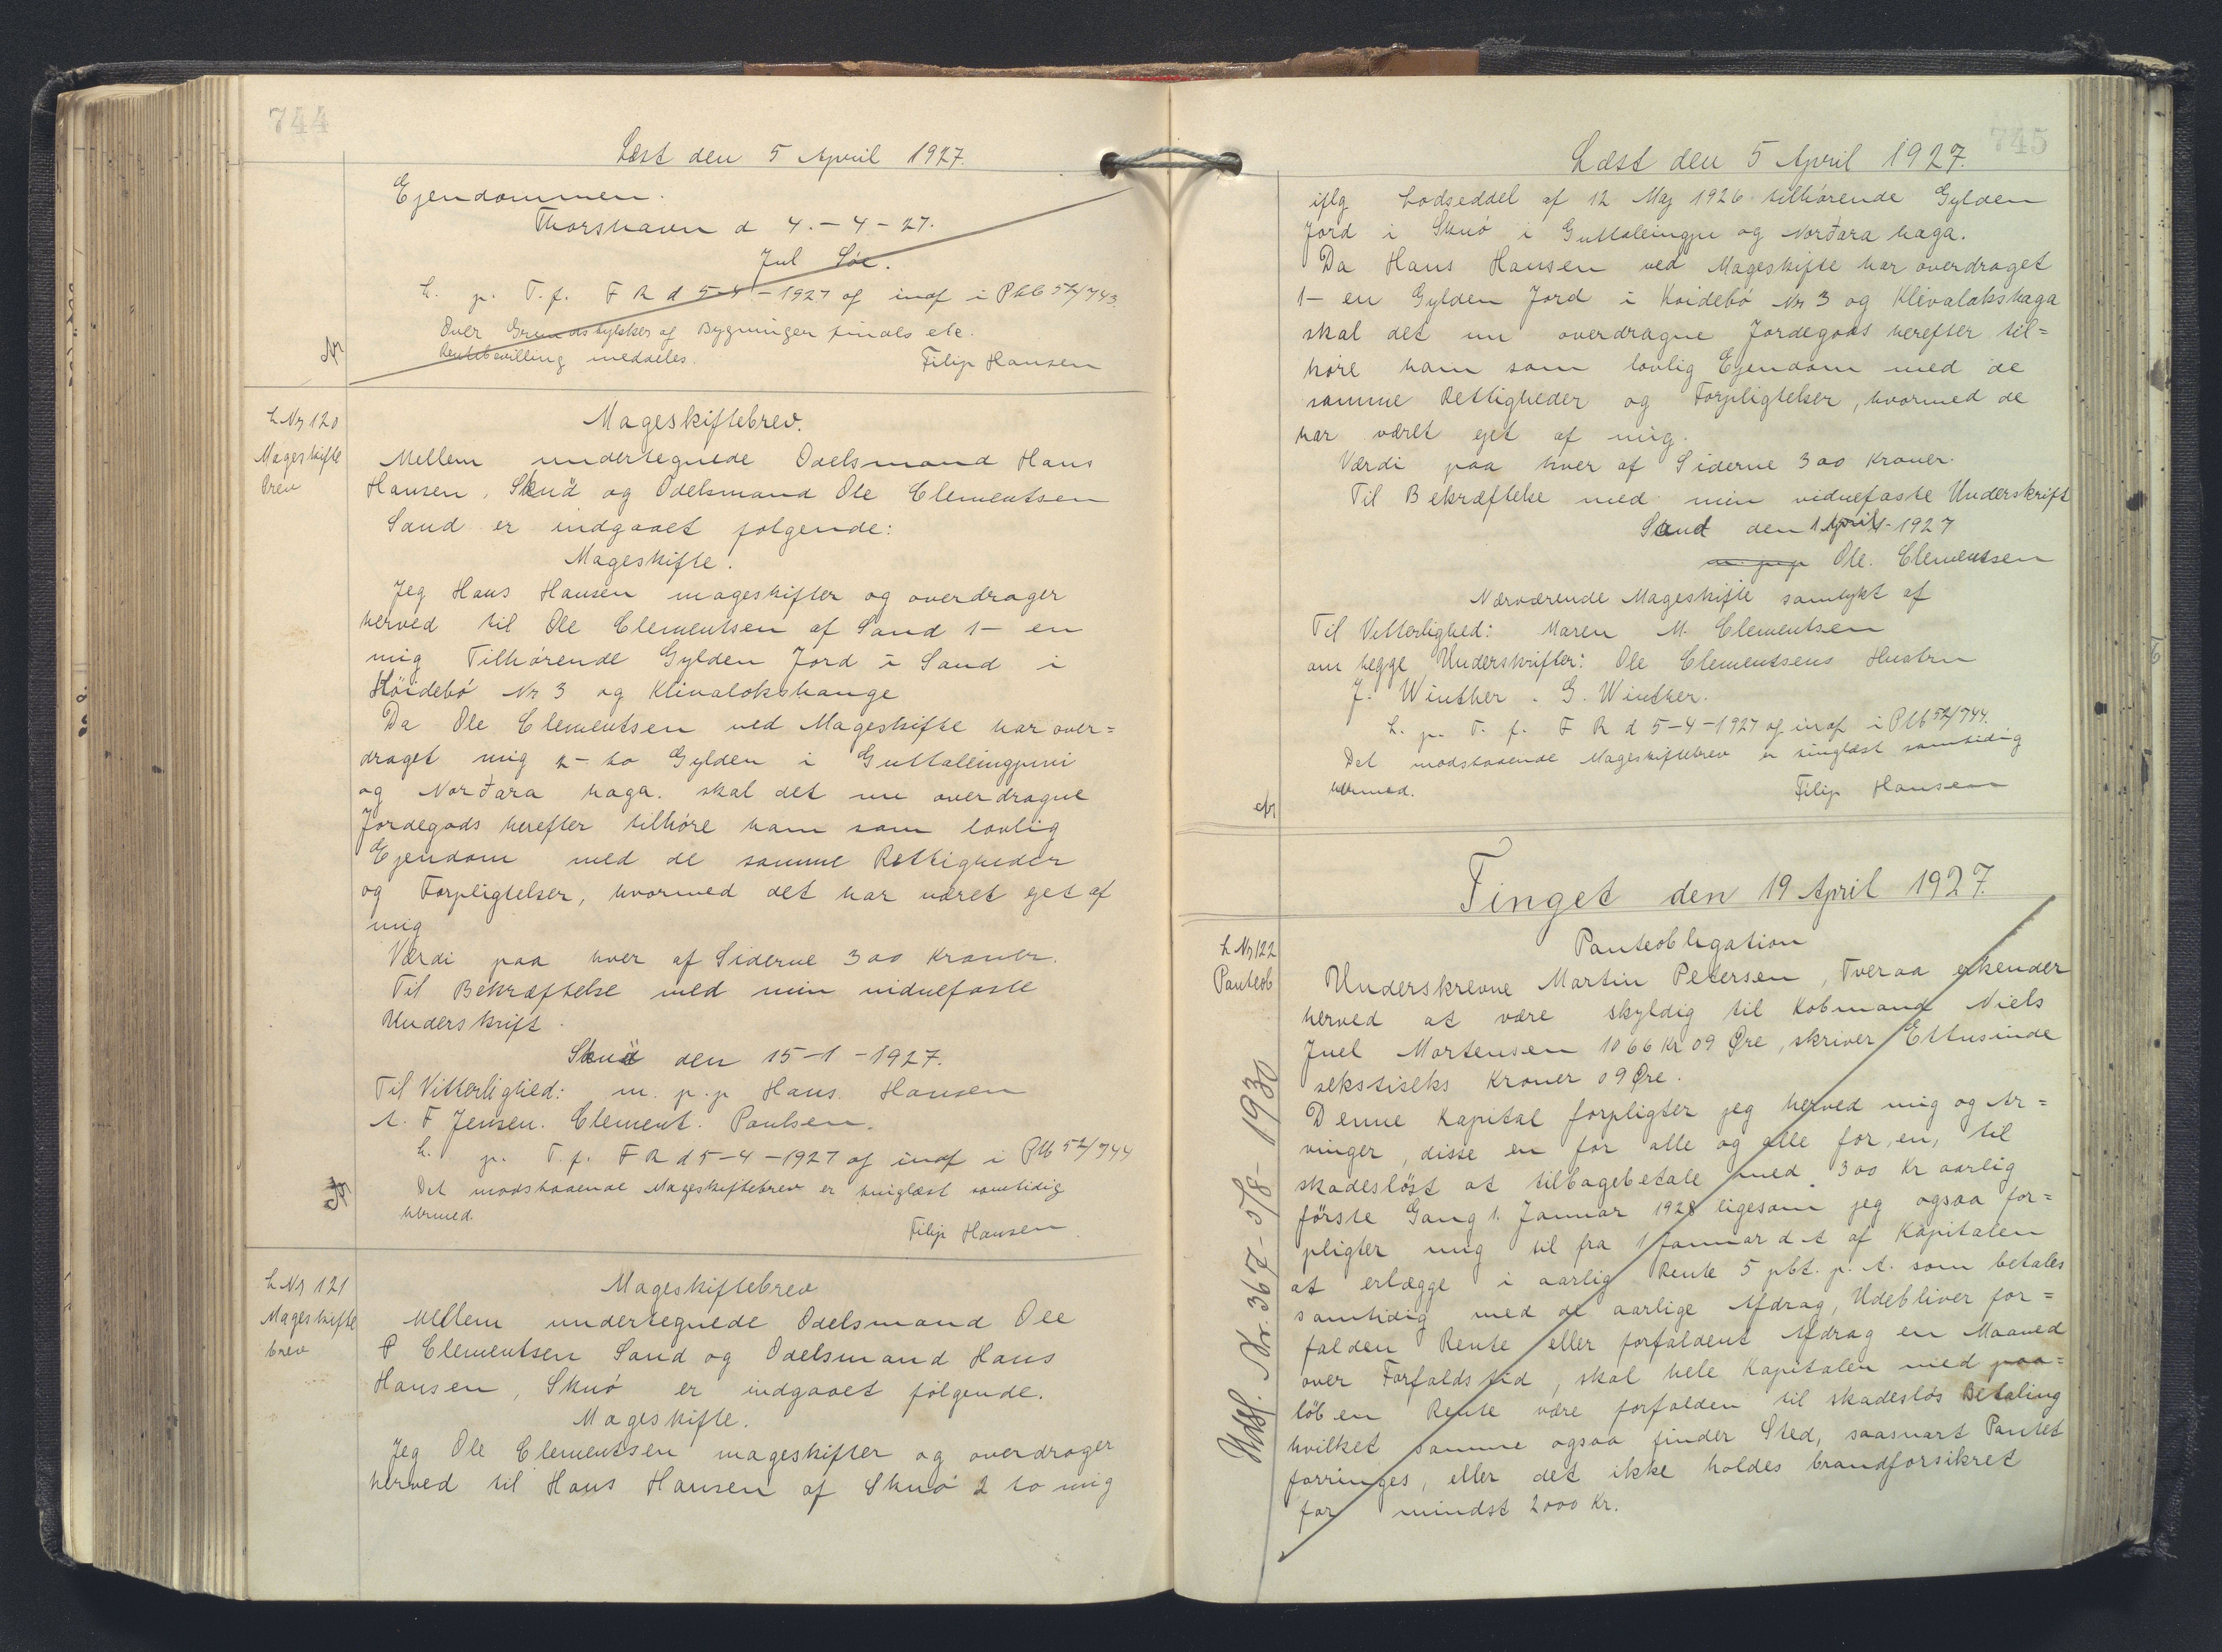 744
Læst den 5 April 1927.
Ejendommen.
Thorshavn d 4.-4-27.
Jul Söe.
L. p. T. f. F R d 5-4-1927 og indf i Pbb 52/743
Over Grundstykker og Bygninger findes ele.
Rentebevilling meddeles.
Filip Hansen
L Nr 120
Mageskifte
brev
Mageskiftebrev.
Mellem undertegnede Odelsmand Hans
Hansen, Skuö og Odelsmand Ole Clementsen
Sand er indgaaet følgende:
Mageskifte.
Jeg Hans Hansen mageskifter og overdrager
herved til Ole Clementsen af Sand 1- en
mig Tilhørende Gylden Jord i Sand i
Höidebö Nr 3 og Klivalokshauge
Da Ole Clementsen ved Mageskifte har over=
draget mig 2- to Gylden i Guttaleingjuni
og Norðara haga. skal det nu overdragne
Jordegods herefter tilhøre ham som lovlig
Ejendom med de samme Rettigheder
og Forpligtelser, hvormed det har været ejet af
mig
Værdi paa hver af Siderne 300 Kroner.
Til Bekræftelse med min vidnefaste
Underskrift.
Skuö den 15-1-1927.
Til Vitterlighed: m. p. p Hans Hansen
A. F Jensen. Clement. Poulsen.
L. p. T. f. F R d 5-4-1927 og indf i Pbb 52/744
Det modstaaende Mageskiftebrev er tinglæst samtidig
hermed.
Filip Hansen
L Nr 121
Mageskifte
brev
Mageskiftebrev
Mellem undertegnede Odelsmand Ole
P Clementsen Sand og Odelsmand Hans
Hansen, Skuö er indgaaet følgende.
Mageskifte.
Jeg Ole Clementsen mageskifter og overdrager
herved til Hans Hansen af Skuö 2 to mig
745
Læst den 5 April 1927.
iflg Lodseddel af 12 Maj 1926 tilhørende Gylden
Jord i Skuö i Guttaleingju og Norðara haga.
Da Hans Hansen ved Mageskifte har overdraget
1- en Gylden Jord i Koidebö Nr 3 og Klivalokshaga
skal det nu overdragne Jordegods herefter til=
høre ham som lovlig Ejendom med de
samme Rettigheder og Forpligtelser, hvormed de
har været ejet af mig.
Værdi paa hver af Siderne 300 Kroner.
Til Bekræftelse med min vidnefaste Underskrift
Sand den 1 April-1927
m. p. p Ole. Clementsen
Nærværende Mageskifte samtykt af
Til Vitterlighed: Maren M. Clementsen
om begge Underskrifter: Ole Clementsens Hustru
J. Winther. G. Winther.
L. p. T. f. F R d 5-4-1927 og indf i Pbb 52/744.
Det modstaaende Mageskiftebrev er tinglæst samtidig
hermed.
Filip Hansen
Tinget den 19 April 1927.
L Nr 122
Panteob
Panteobligation
Underskrevne Martin Petersen, Tveraa erkender
herved at være skyldig til Købmand Niels
Juel Mortensen 1066 Kr 09 Øre, skriver Ettusinde
sekstiseks Kroner 09 Øre.
Denne Kapital forpligter jeg herved mig og Ar=
vinger, disse en for alle og alle for en, til
skadesløst at tilbagebetale med 300 Kr aarlig
förste Gang 1. Januar 1928 ligesom jeg ogsaa for=
pligter mig til fra 1 Januar d A af Kapitalen
at erlægge i aarlig Rente 5 pCt. p. A. som betales
samtidig med de aarlige Afdrag, Udebliver for=
falden Rente eller forfaldent Afdrag en Maaned
over Forfaldstid, skal hele Kapitalen med paa=
löben Rente være forfalden til skadesløs Betaling
hvilket samme ogsaa finder Sted, saasnart Pantet
forringes, eller det ikke holdes brandforsikret
for mindst 2000 Kr.
Udsl. Nr. 367-5/8-1930